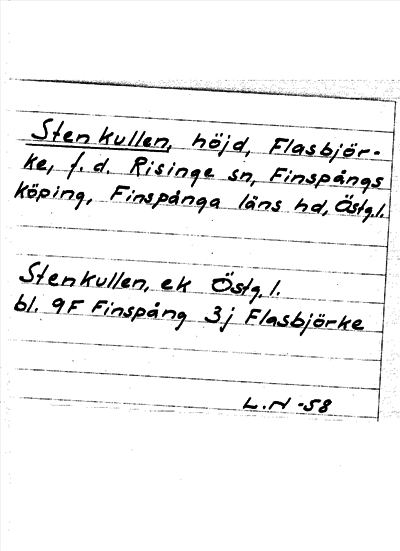 Stenkullen, höjd, Flasbjör-
ke, f.d. Risinge sn, Finspångs
köping, Finspånga läns hd, Östg.l.
Stenkullen, ek Östg.l.
bl. 9F Finspång 3j Flasbjörke
L.N -58